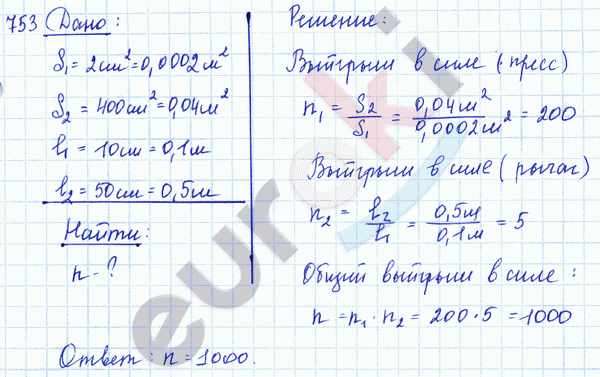 753 Дано:
S₁ = 2 см² = 0,0002 м²
S₂ = 400 см² = 0,04 м²
l₁ = 10 см = 0,1 м
l₂ = 50 см = 0,5 м
Найти:
n - ?
Решение:
Выигрыш в силе (пресс)
n₁ = S₂/S₁ = 0,04 м²/0,0002 м² = 200
Выигрыш в силе (рычаг)
n₂ = l₂/l₁ = 0,5 м/0,1 м = 5
Общий выигрыш в силе:
n = n₁ · n₂ = 200 · 5 = 1000
Ответ: n = 1000.
euroki